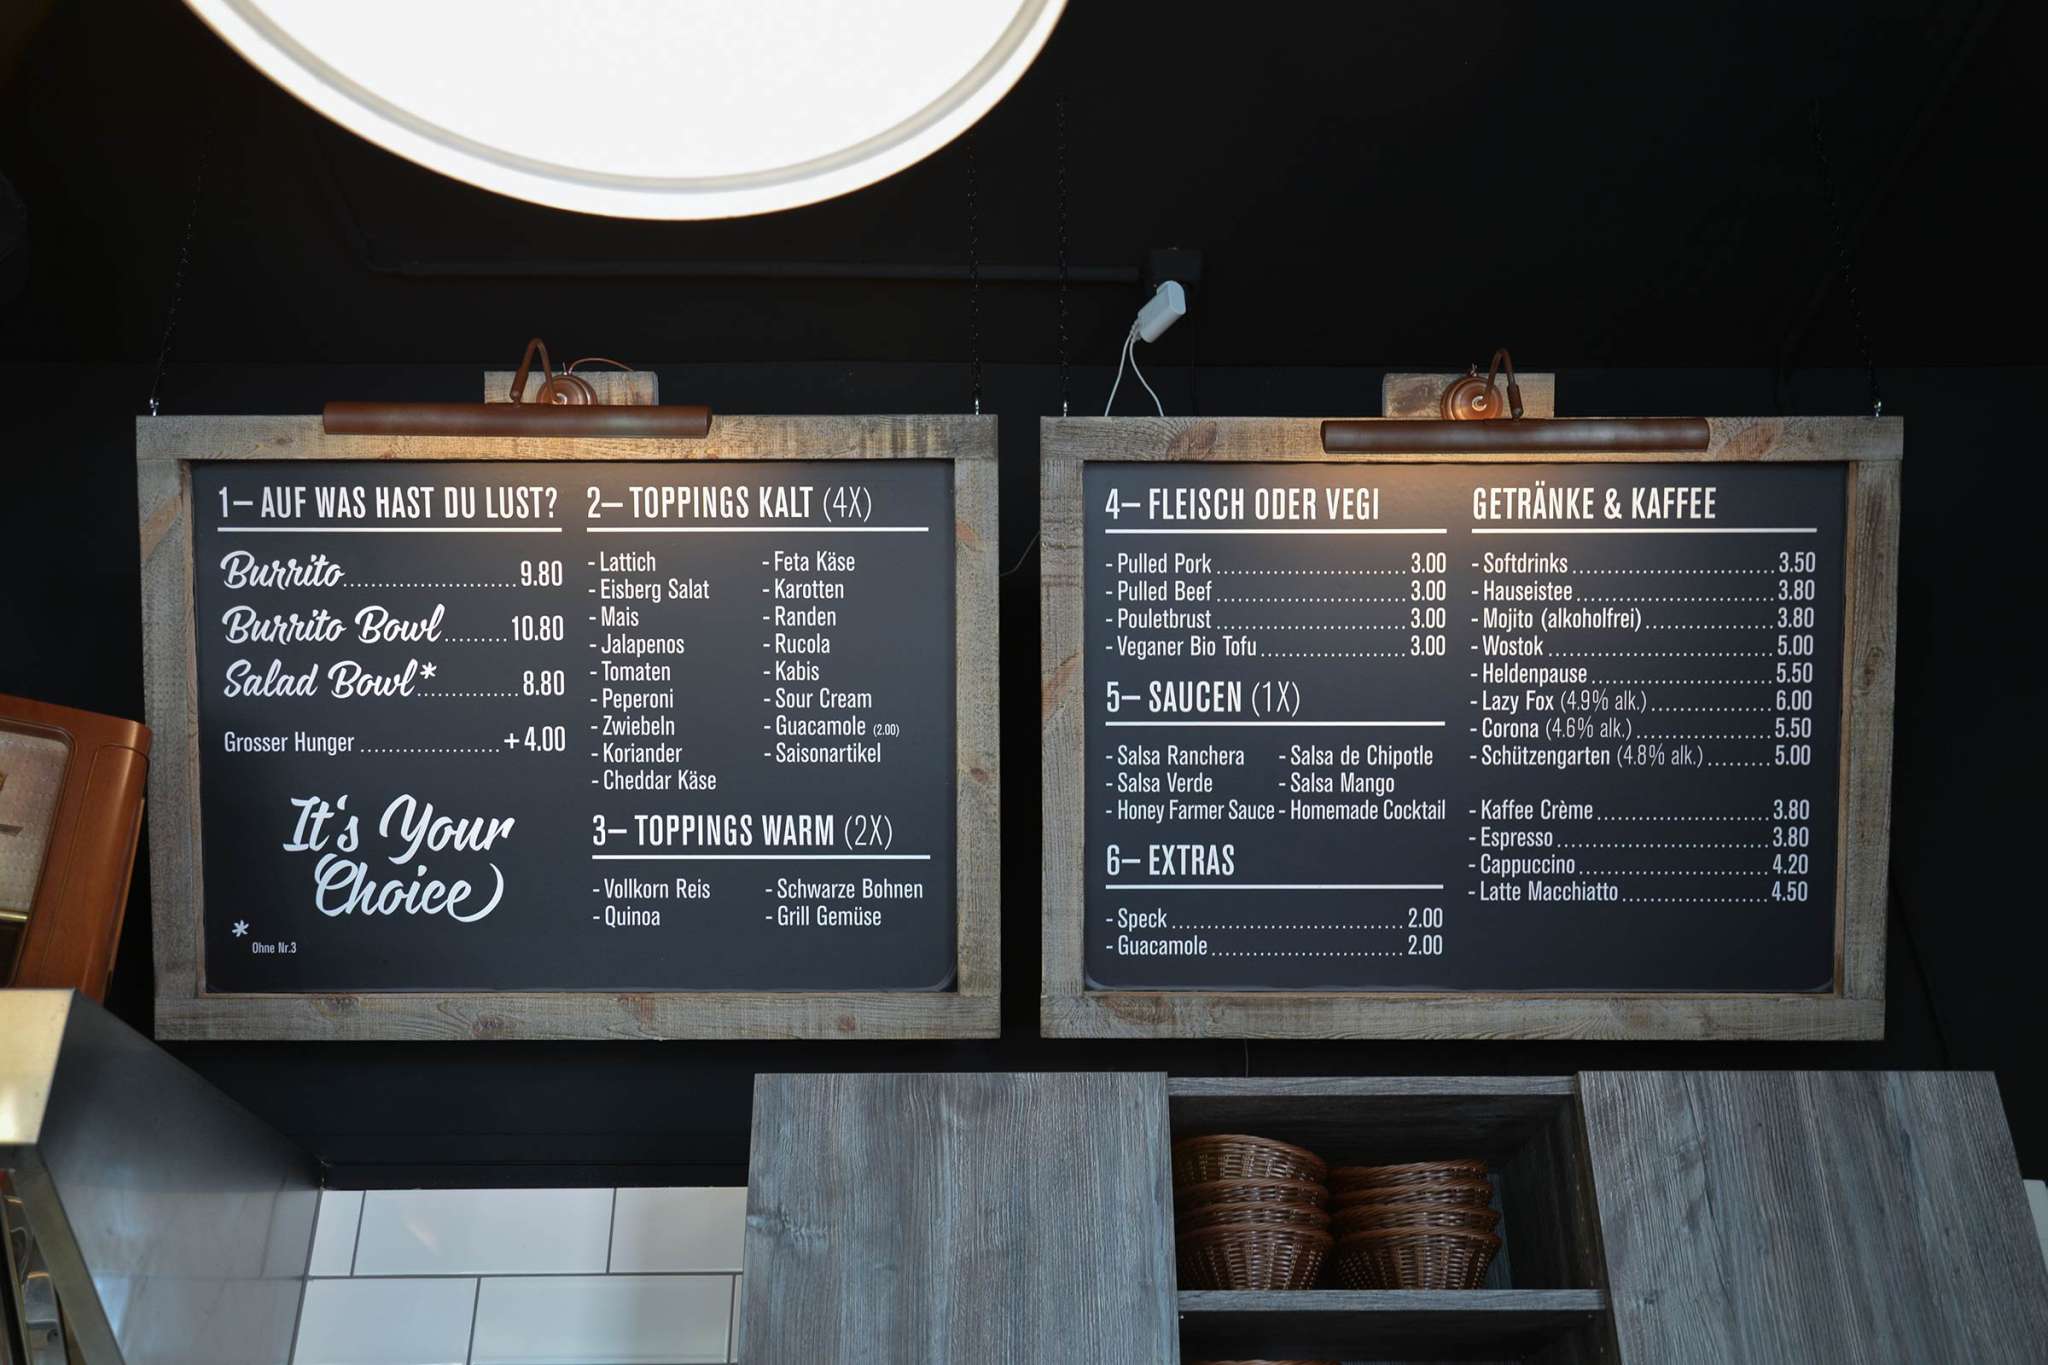 1– AUF WAS HAST DU LUST?
Burrito 9.80
Burrito Bowl 10.80
Salad Bowl* 8.80
Grosser Hunger +4.00
It's Your
Choice
*
Ohne Nr.3
2– TOPPINGS KALT (4X)
- Lattich
- Eisberg Salat
- Mais
- Jalapenos
- Tomaten
- Peperoni
- Zwiebeln
- Koriander
- Cheddar Käse
- Feta Käse
- Karotten
- Randen
- Rucola
- Kabis
- Sour Cream
- Guacamole (2.00)
- Saisonartikel
3– TOPPINGS WARM (2X)
- Vollkorn Reis
- Quinoa
- Schwarze Bohnen
- Grill Gemüse
4– FLEISCH ODER VEGI
- Pulled Pork 3.00
- Pulled Beef 3.00
- Pouletbrust 3.00
- Veganer Bio Tofu 3.00
5– SAUCEN (1X)
- Salsa Ranchera
- Salsa Verde
- Honey Farmer Sauce
- Salsa de Chipotle
- Salsa Mango
- Homemade Cocktail
6– EXTRAS
- Speck 2.00
- Guacamole 2.00
GETRÄNKE & KAFFEE
- Softdrinks 3.50
- Hauseistee 3.80
- Mojito (alkoholfrei) 3.80
- Wostok 5.00
- Heldenpause 5.50
- Lazy Fox (4.9% alk.) 6.00
- Corona (4.6% alk.) 5.50
- Schützengarten (4.8% alk.) 5.00
- Kaffee Crème 3.80
- Espresso 3.80
- Cappuccino 4.20
- Latte Macchiatto 4.50